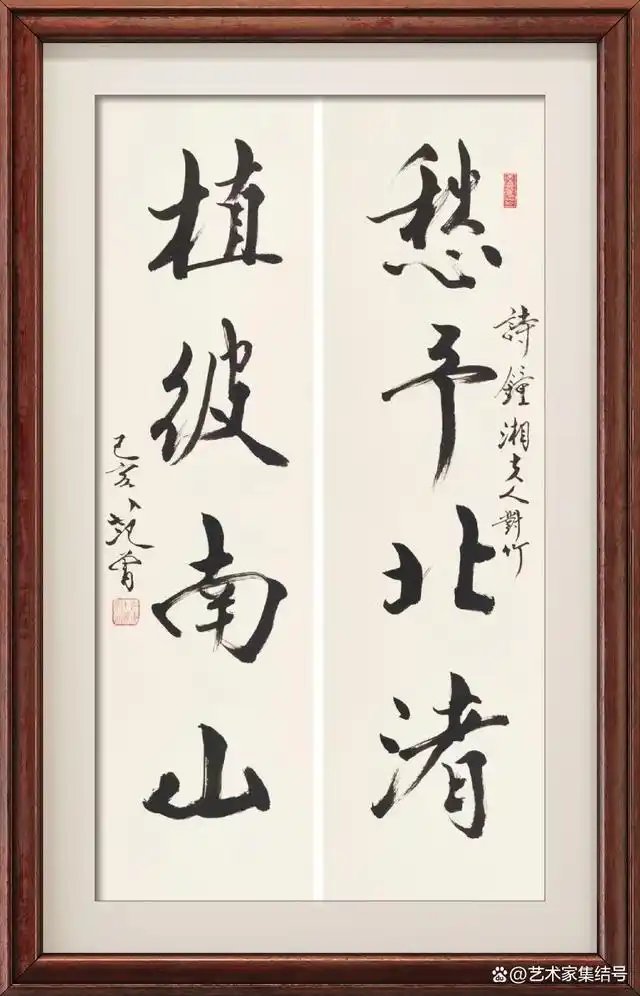 詩鐘湘夫人對竹
愁予北渚
植彼南山
己亥 范曾
@艺术家集结号